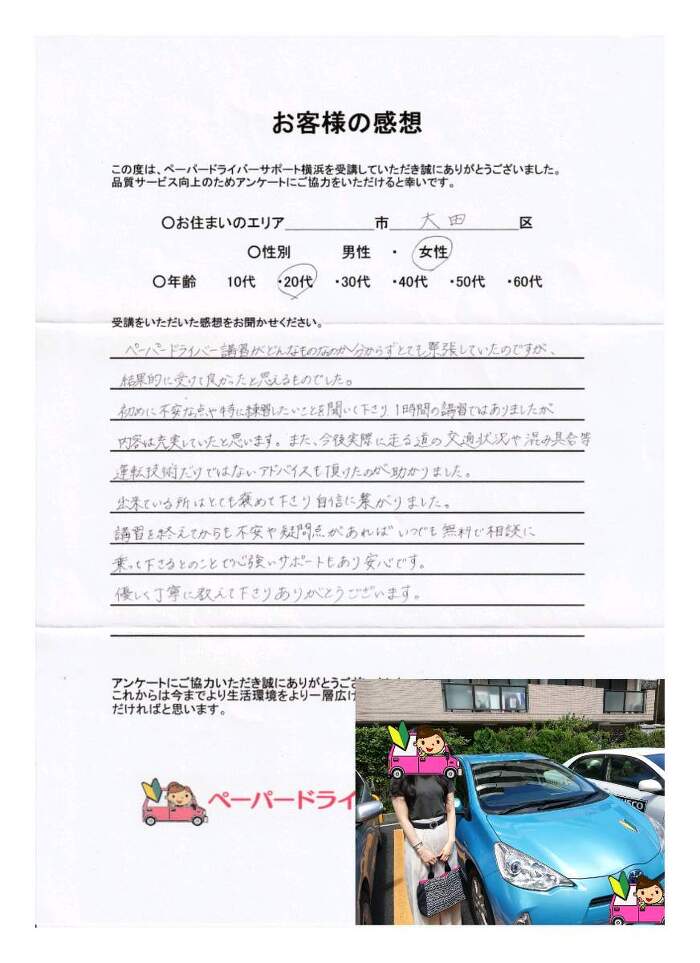 お客様の感想
この度は、ペーパードライバーサポート横浜を受講していただき誠にありがとうございました。
品質サービス向上のためアンケートにご協力をいただけると幸いです。
〇お住まいのエリア＿＿＿＿＿＿市 大田 区
〇性別 男性 ・ 女性
〇年齢 10代 ・20代 ・30代 ・40代 ・50代 ・60代
受講をいただいた感想をお聞かせください。
ペーパードライバー講習がどんなものなのか分からずとても緊張していたのですが、
結果的に受けて良かったと思えるものでした。
初めに不安な点や特に練習したいことを聞いて下さり 1時間の講習ではありましたが
内容は充実していたと思います。また、今後実際に走る道の交通状況や混み具合等
運転技術だけではないアドバイスも頂けたのが助かりました。
出来ている所はとても褒めて下さり自信に繋がりました。
講習を終えてからも不安や疑問点があればいつでも無料で相談に
乗って下さるとのことで心強いサポートもあり安心です。
優しく丁寧に教えて下さりありがとうございます。
アンケートにご協力いただき誠にありがとうござ
これからは今までより生活環境をより一層広げ
だければと思います。
ペーパードライ